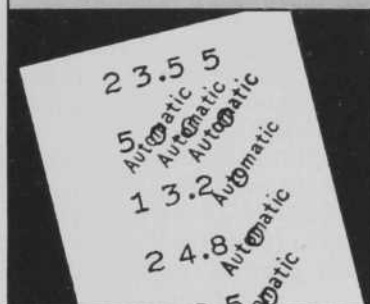 2 3.5 5
5.0 0 0
Automatic
Automatic
Automatic
1 3.2 0
Automatic
2 4.8 0
Automatic